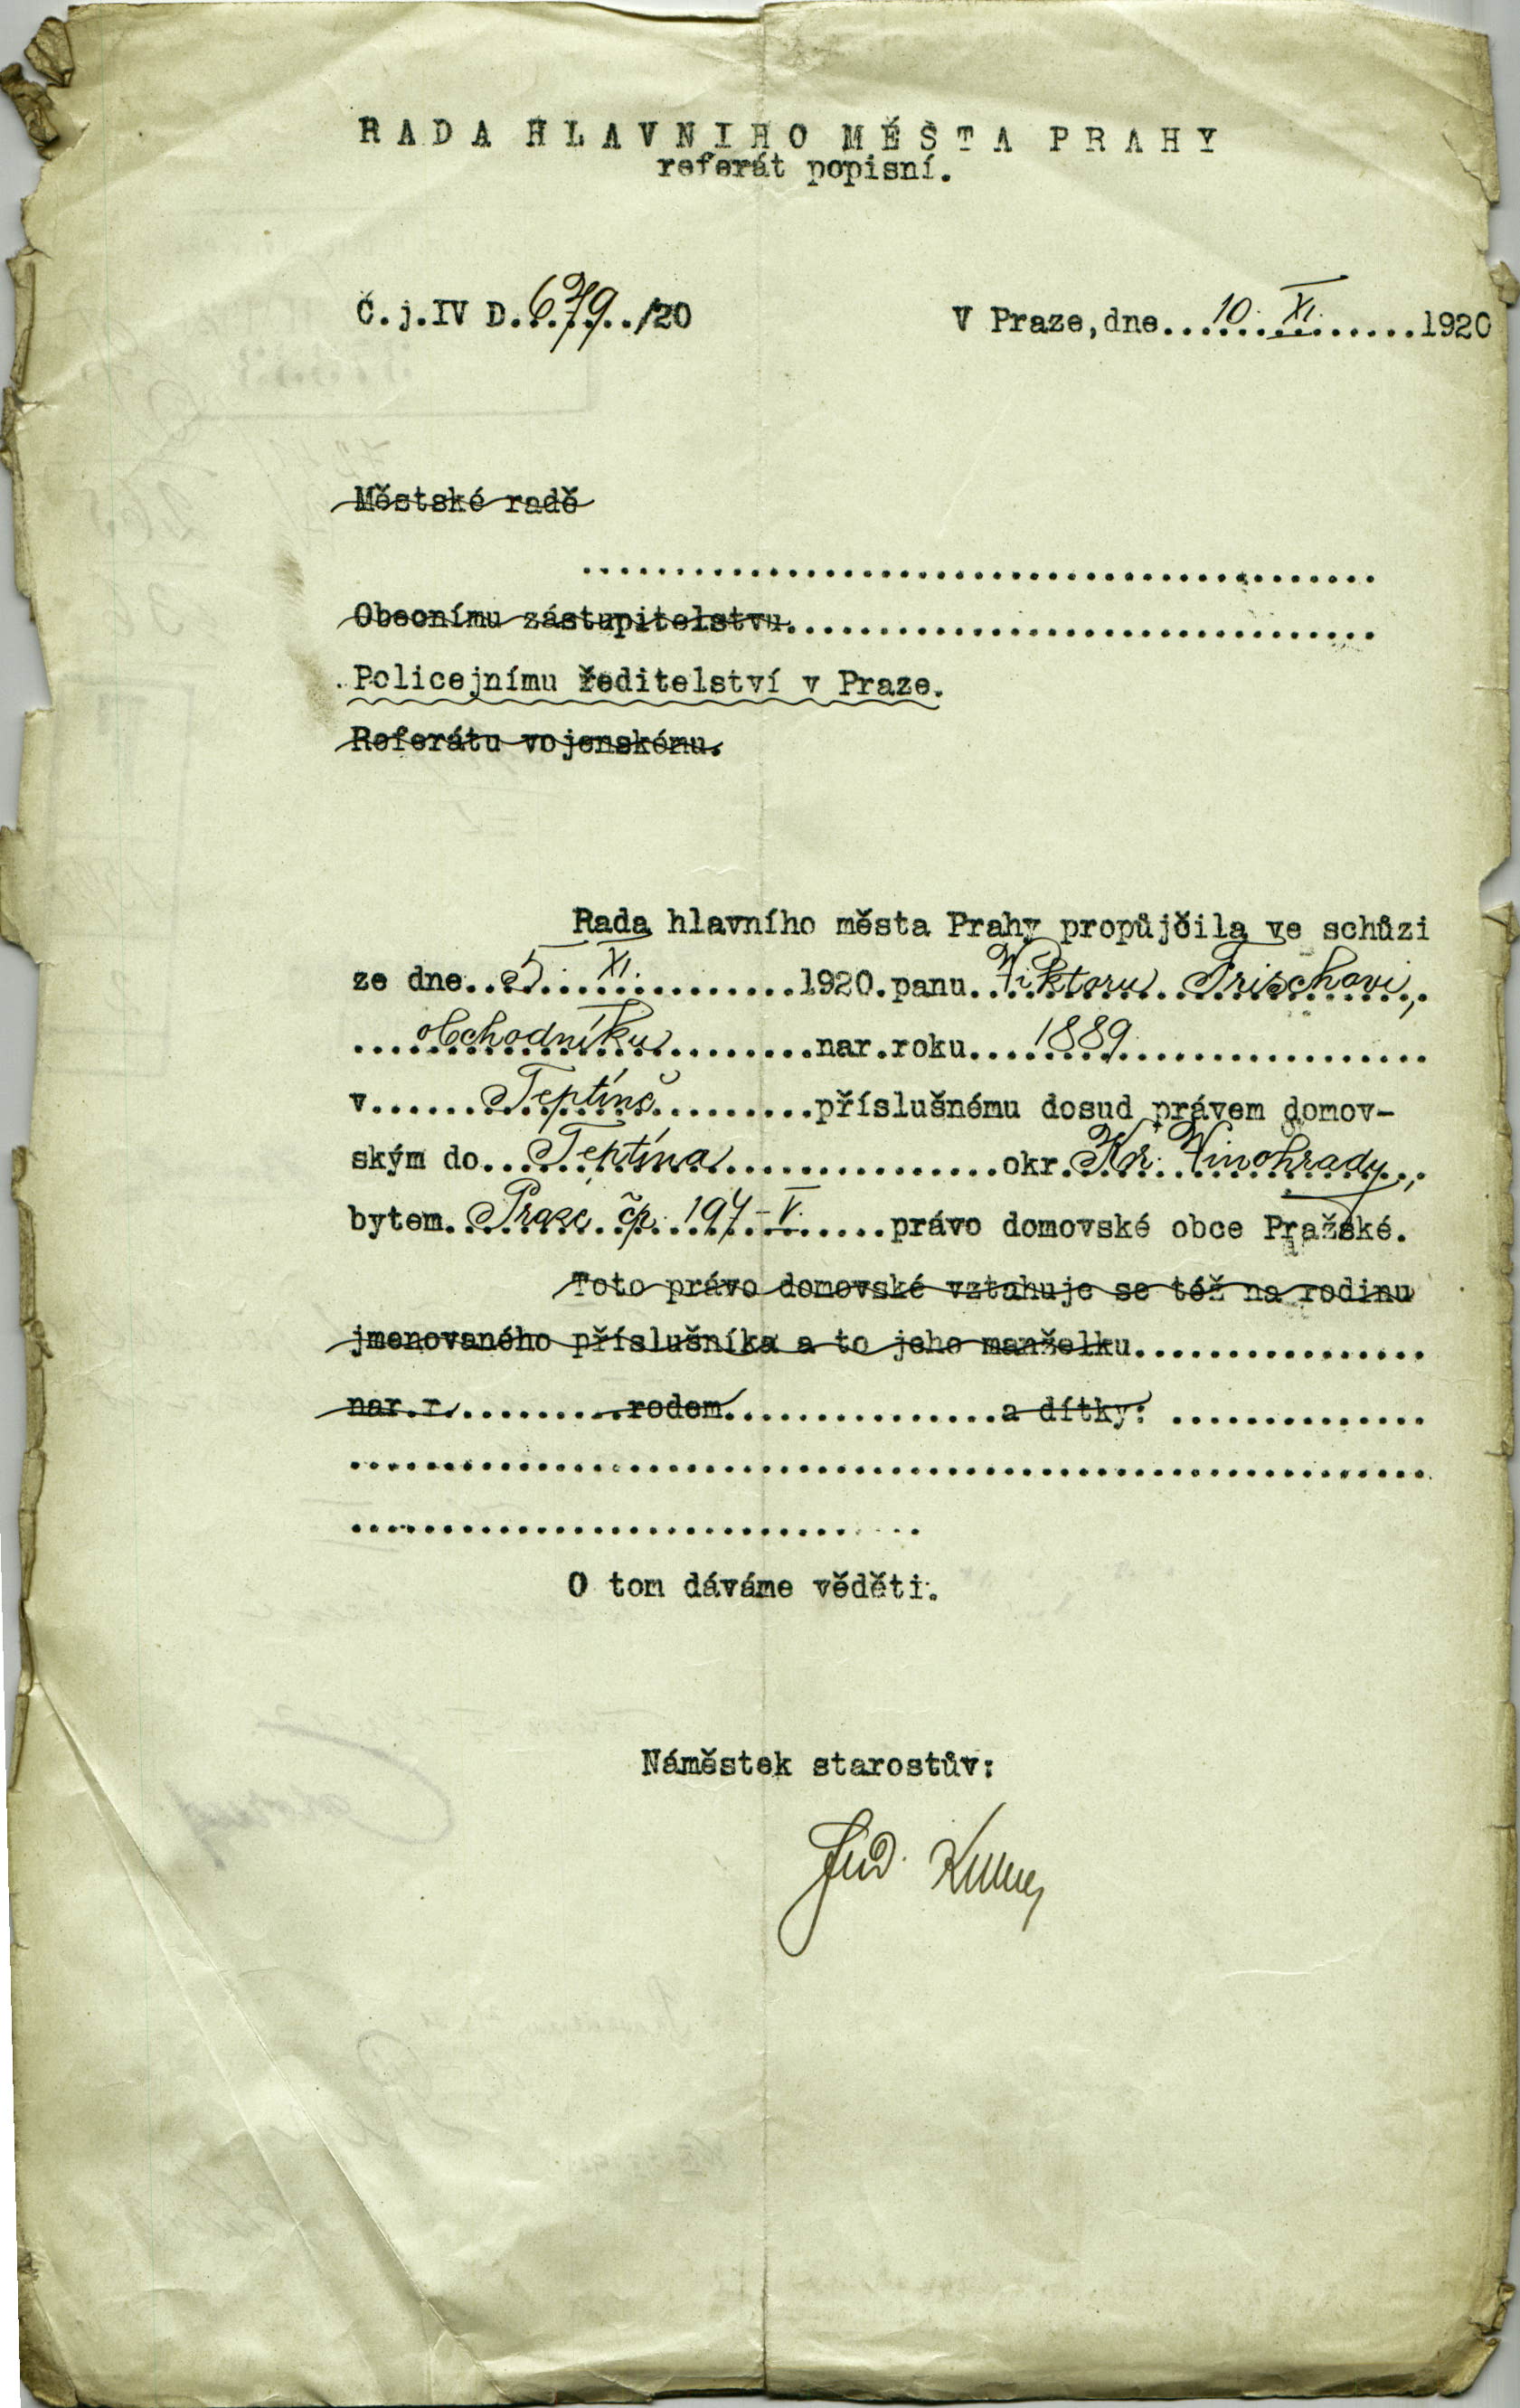 RADA HLAVNIHO MĚSTA PRAHY
referát popisní.
Č.j.IV D.679../20
V Praze,dne....10. XI.......1920
Městské radě
..................................................
Obecnímu zástupitelstvu.....................................
Policejnímu ředitelství v Praze.
Referátu vojenskému.
Rada hlavního města Prahy propůjčila ve schůzi
ze dne..5. XI...........1920.panu.Viktoru Frischovi,
....obchodníku..........nar.roku....1889....................
v......Teptíně..........příslušnému dosud právem domov-
ským do...Teptína..................okr.Kr. Vinohrady,
bytem.Praze čp. 197-V......právo domovské obce Pražské.
Toto právo domovské vztahuje se též na rodinu
jmenovaného příslušníka a to jeho manželku...................
nar.r...........rodem..................a dítky: ................
......................................................................
.....................................
O tom dáváme věděti.
Náměstek starostův: